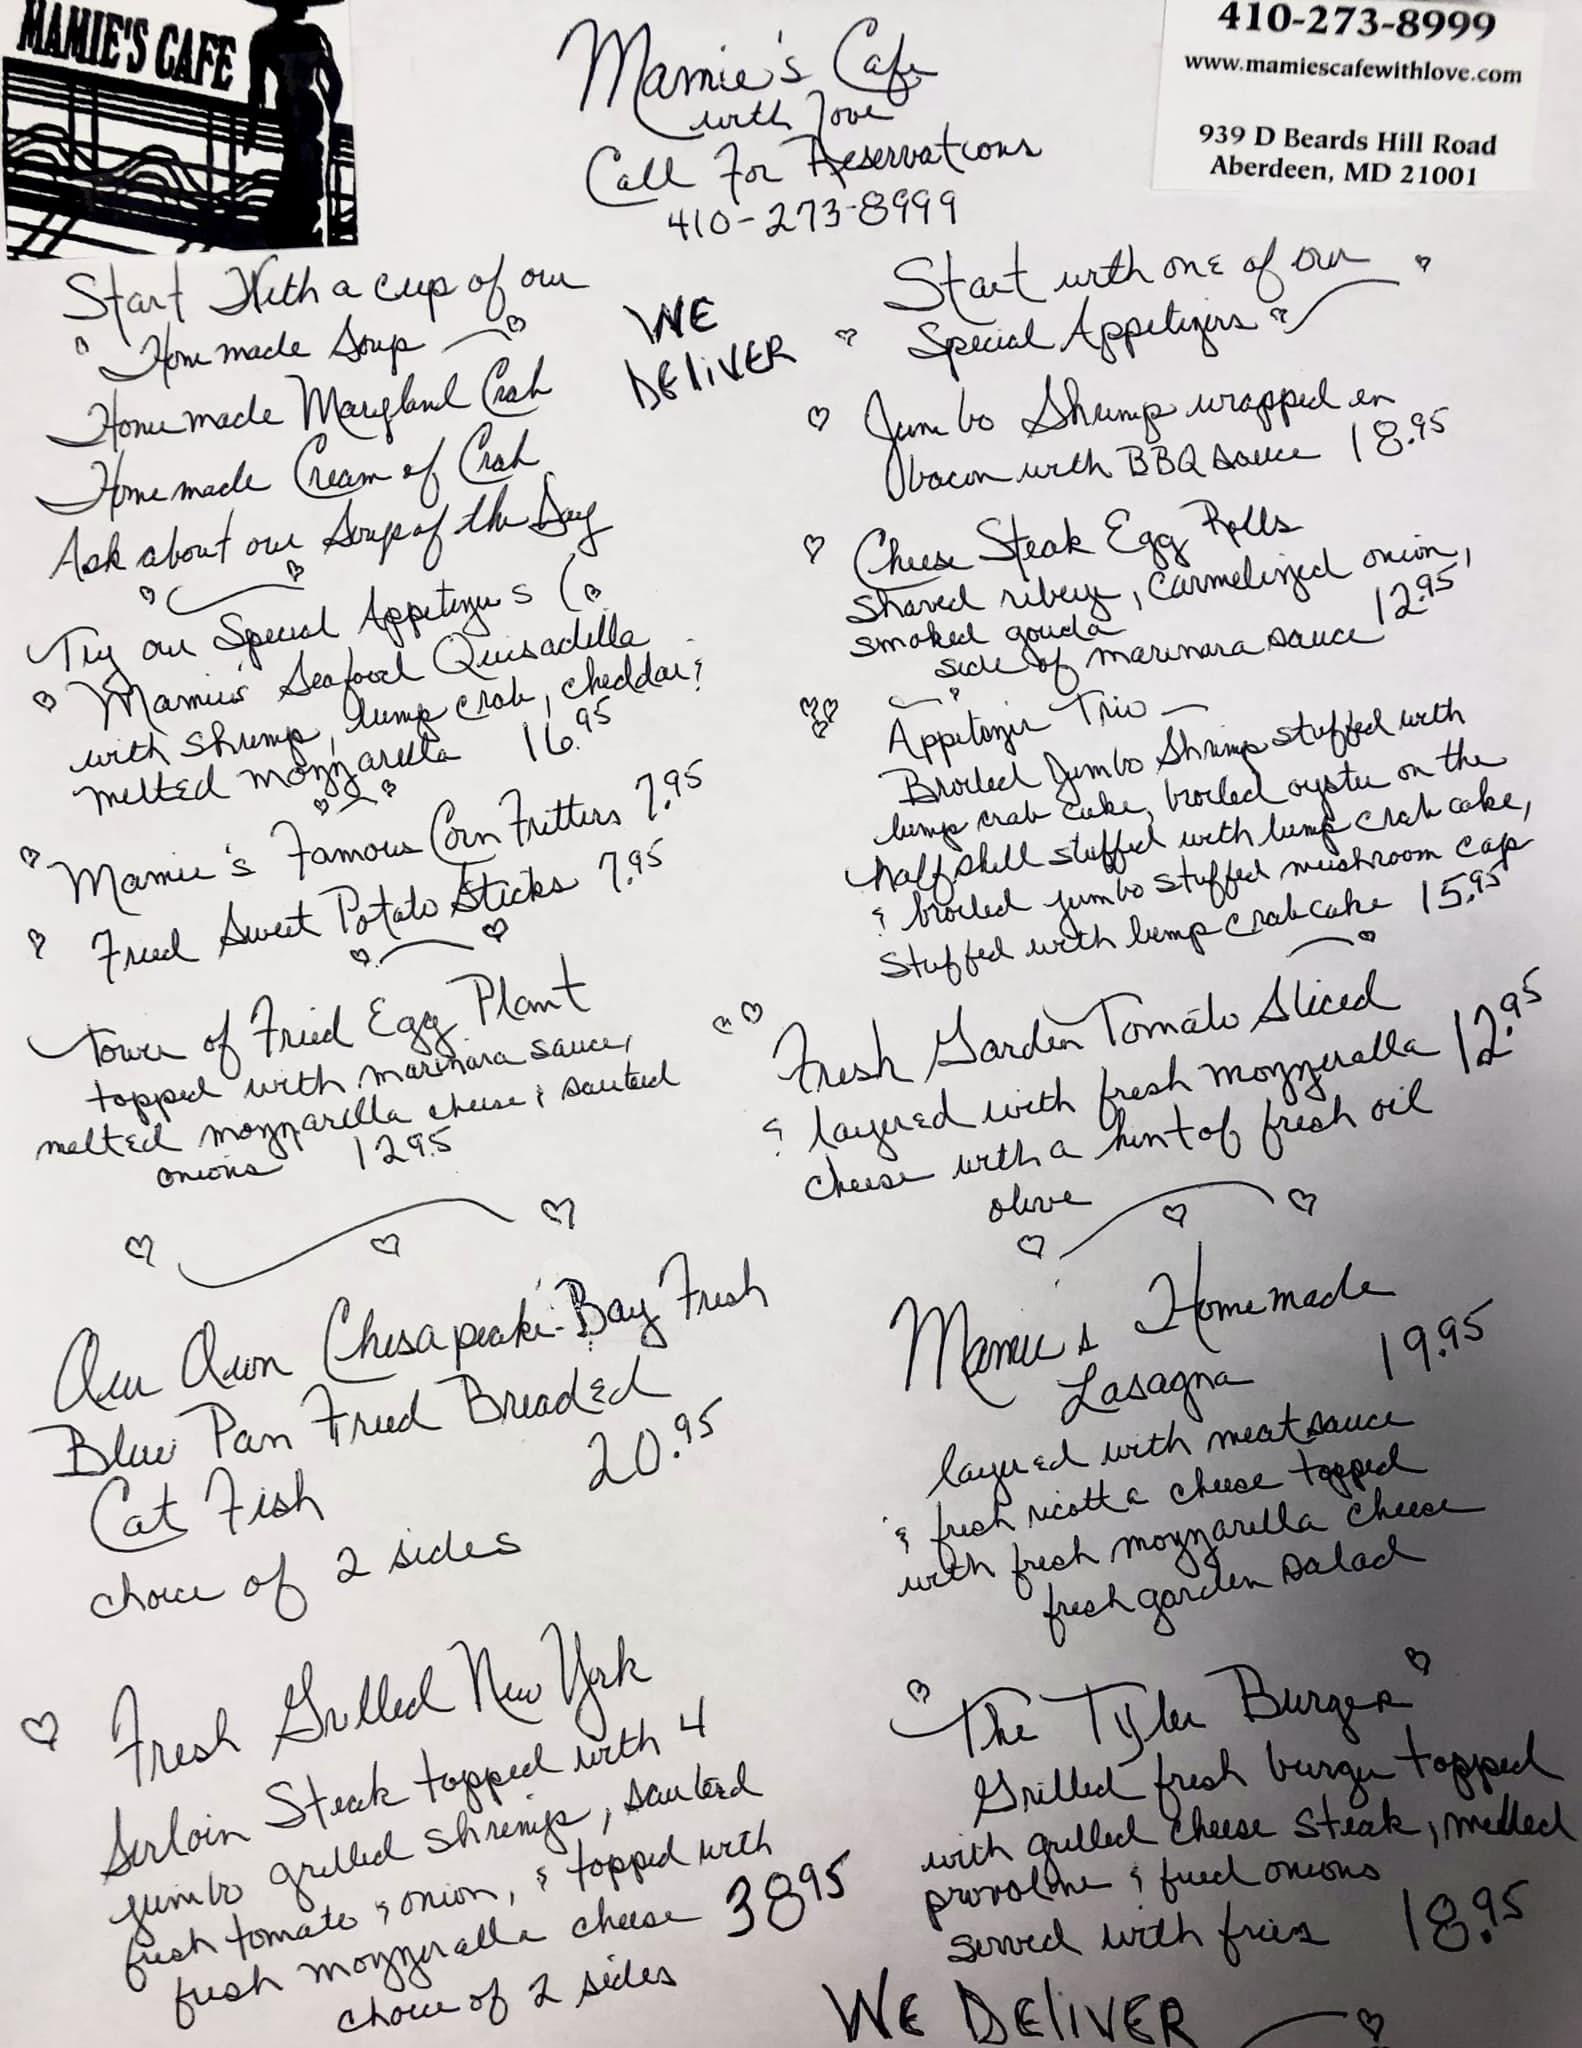 MAMIE'S CAFE
Mamie's Cafe
with Love
Call For Reservations
410-273-8999
410-273-8999
www.mamiescafewithlove.com
939 D Beards Hill Road
Aberdeen, MD 21001
Start With a cup of our
"Homemade Soup
Homemade Maryland Crab
Homemade Cream of Crab
Ask about our Soup of the Day
WE
DELIVER
Try our Special Appetizers
Mamie's Seafood Quisadella
with shrimp, lump crab, cheddar &
melted mozzarella 16.95
Mamie's Famous Corn Fritters 7.95
Fried Sweet Potato Sticks 7.95
Tower of Fried Egg Plant
topped with marinara sauce,
melted mozzarella cheese & sauteed
onions 12.95
Our Own Chesapeake Bay Fresh
Blue Pan Fried Breaded
Cat Fish 20.95
choice of 2 sides
Fresh Grilled New York
Serloin Steak topped with 4
jumbo grilled shrimp, sauteed
fresh tomato & onion, & topped with
fresh mozzeralla cheese 38.95
choice of 2 sides
Start with one of our
Special Appetizers
Jumbo Shrimp wrapped in
bacon with BBQ sauce 18.95
Cheese Steak Egg Rolls
Shaved ribeye, carmelized onion,
smoked gouda 12.95
side of marinara sauce
Appetizer Trio
Broiled Jumbo Shrimp stuffed with
lump crab cake, broiled oyster on the
half shell stuffed with lump crab cake,
& broiled jumbo stuffed mushroom cap
stuffed with lump crab cake 15.95
Fresh Garden Tomato Sliced
& layered with fresh mozzeralla 12.95
cheese with a hint of fresh oil
olive
Mamie's Homemade
Lasagna 19.95
layered with meat sauce
& fresh ricotta cheese topped
with fresh mozzarella cheese
fresh garden salad
"The Tyler Burger"
Grilled fresh burger topped
with grilled cheese steak, melted
provolone & fried onions
served with fries 18.95
WE DELIVER